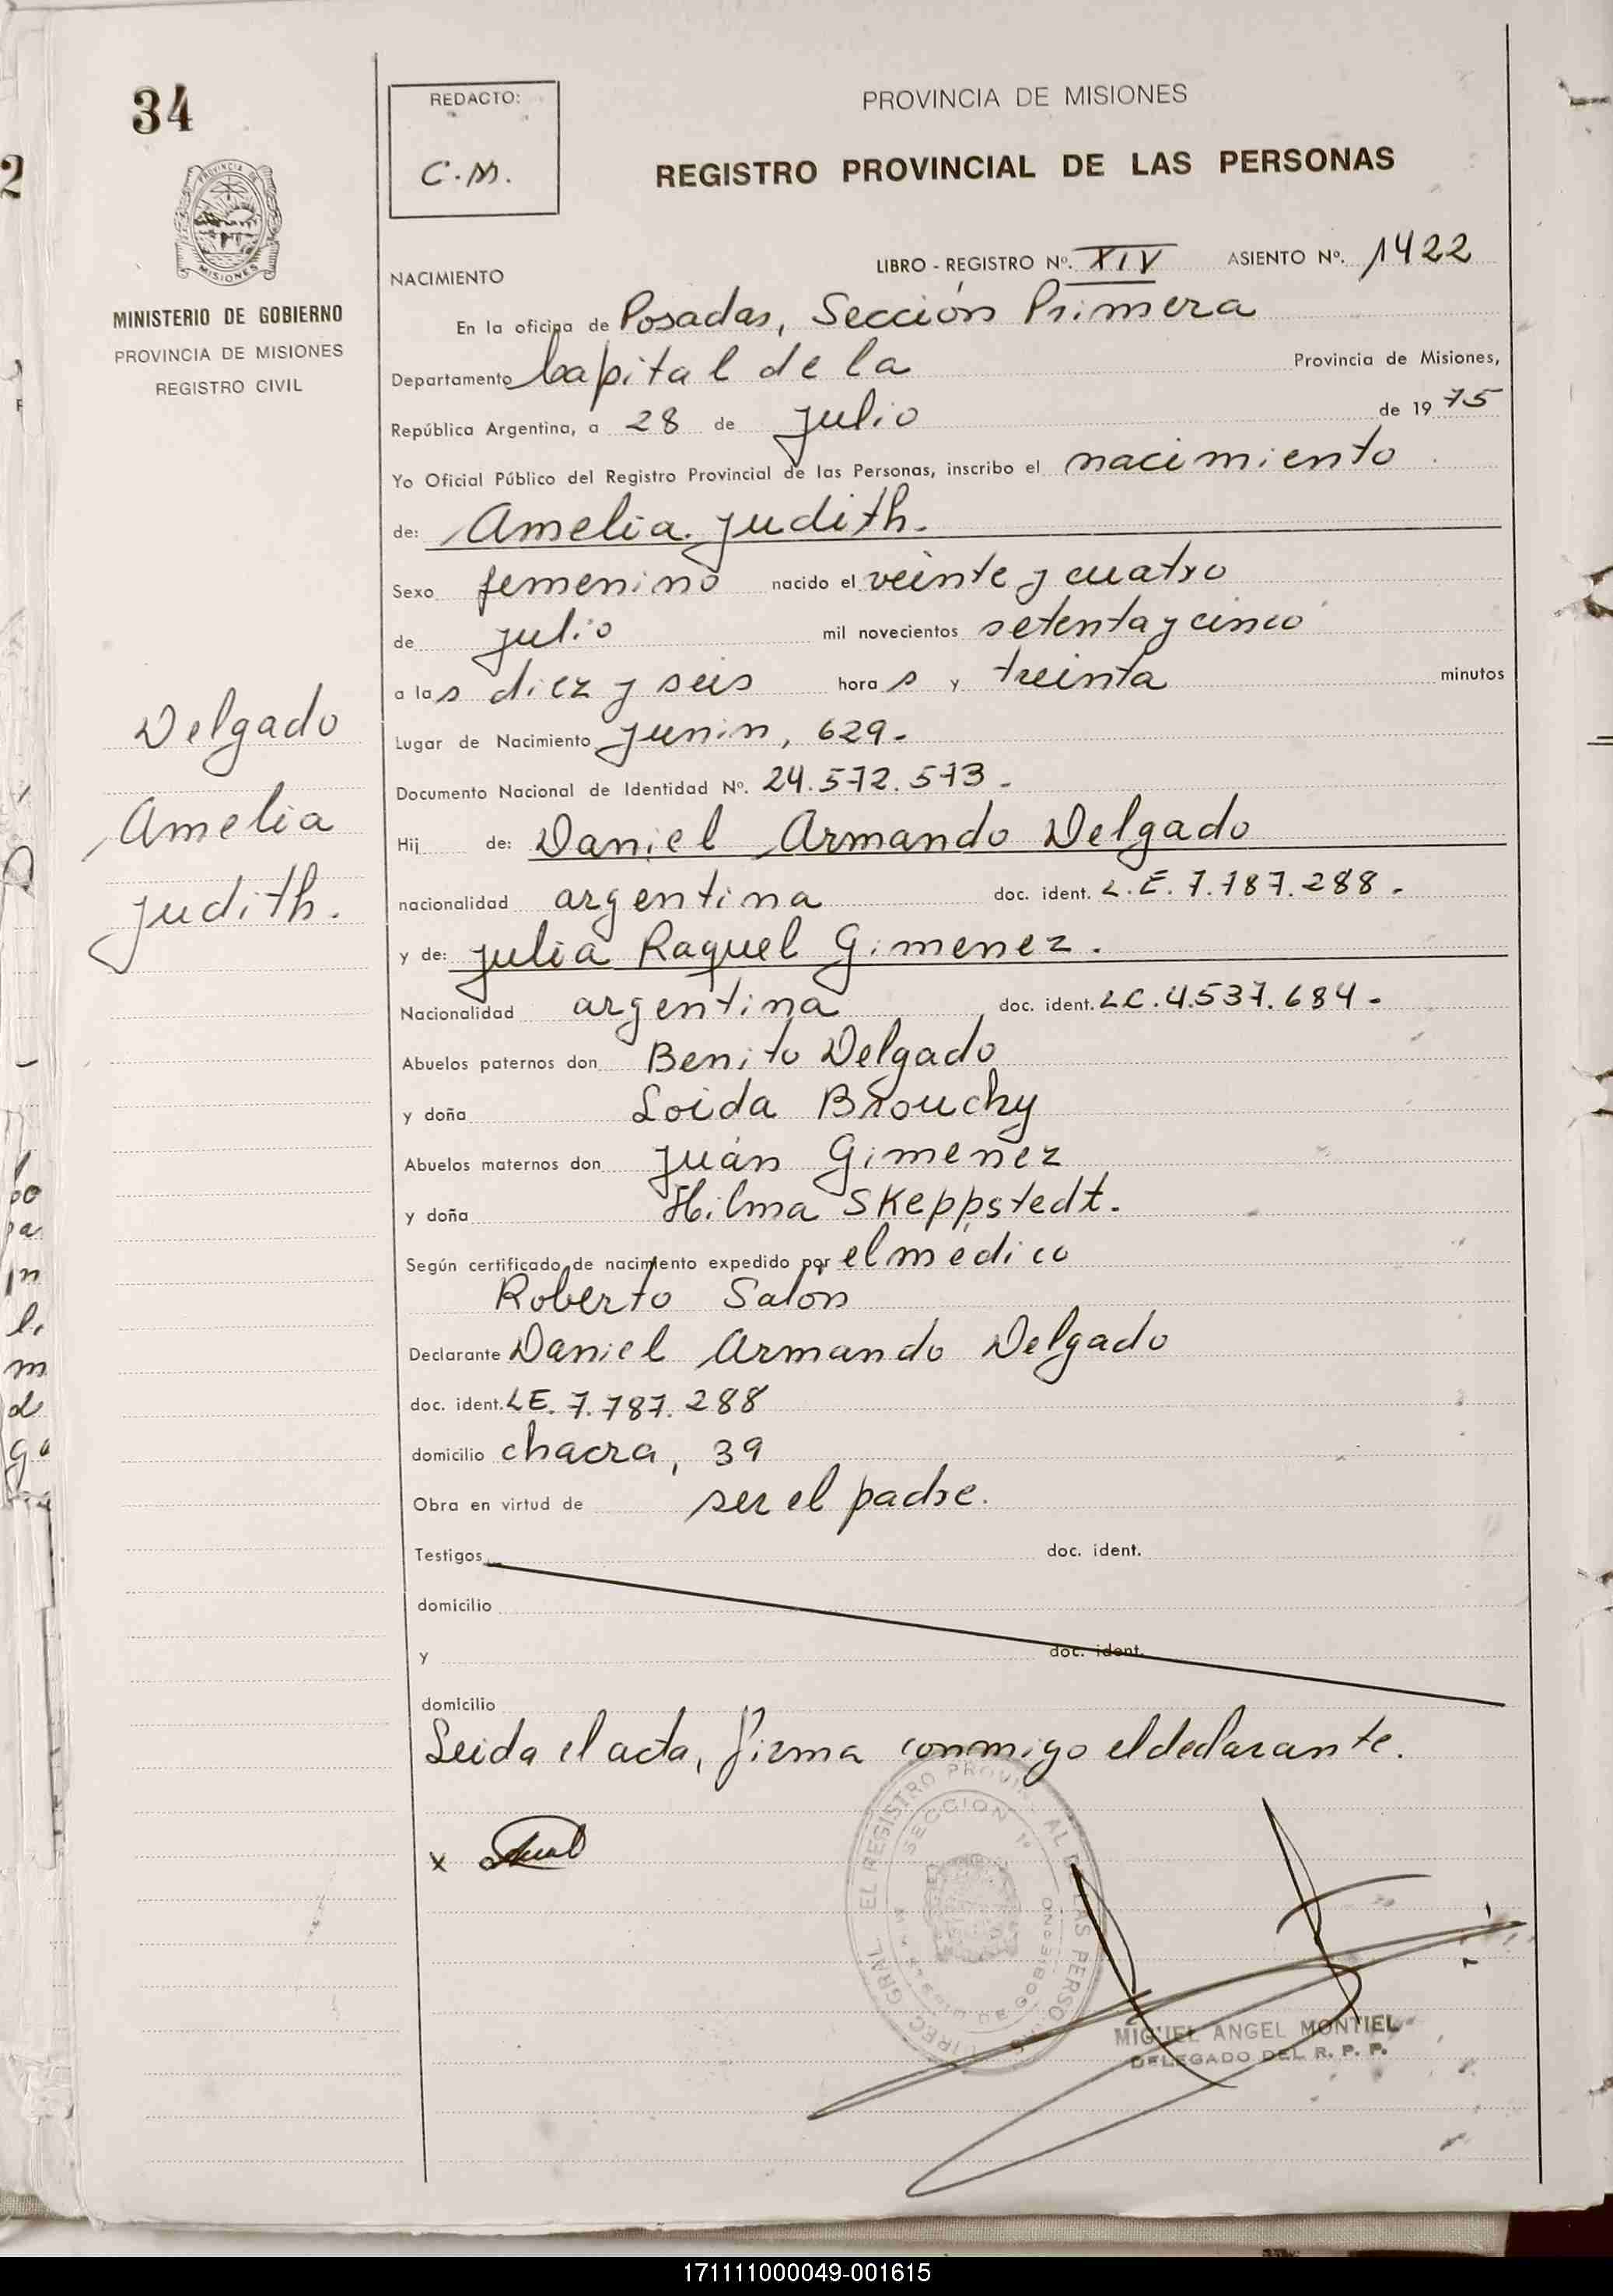 34
REDACTO:
C.M.
PROVINCIA DE MISIONES
REGISTRO PROVINCIAL DE LAS PERSONAS
MINISTERIO DE GOBIERNO
PROVINCIA DE MISIONES
REGISTRO CIVIL
LIBRO - REGISTRO Nº. XIV ASIENTO Nº. 1422
NACIMIENTO
En la oficina de Posadas, Sección Primera
Departamento Capital de la Provincia de Misiones,
República Argentina, a 28 de Julio de 1975
Yo Oficial Público del Registro Provincial de las Personas, inscribo el nacimiento
de: Amelia Judith.
Sexo femenino nacido el veinte y cuatro
de Julio mil novecientos setenta y cinco
a las diez y seis horas y treinta minutos
Lugar de Nacimiento Junin, 629.
Documento Nacional de Identidad Nº. 24.572.573.
Hij de: Daniel Armando Delgado
nacionalidad argentina doc. ident. L.E. 7.787.288.
y de: Julia Raquel Gimenez.
Nacionalidad argentina doc. ident. L.C. 4.537.684.
Abuelos paternos don Benito Delgado
y doña Loida Brouchy
Abuelos maternos don Juan Gimenez
y doña Hilma Skeppstedt.
Según certificado de nacimiento expedido por el médico
Roberto Salon
Declarante Daniel Armando Delgado
doc. ident. LE. 7.787.288
domicilio chacra, 39
Obra en virtud de ser el padre.
Testigos doc. ident.
domicilio
y doc. ident.
domicilio
Leida el acta, firma conmigo el declarante.
x
Delgado
Amelia
Judith.
SECCION 1ª
MIGUEL ANGEL MONTIEL
DELEGADO DEL R. P. P.
171111000049-001615